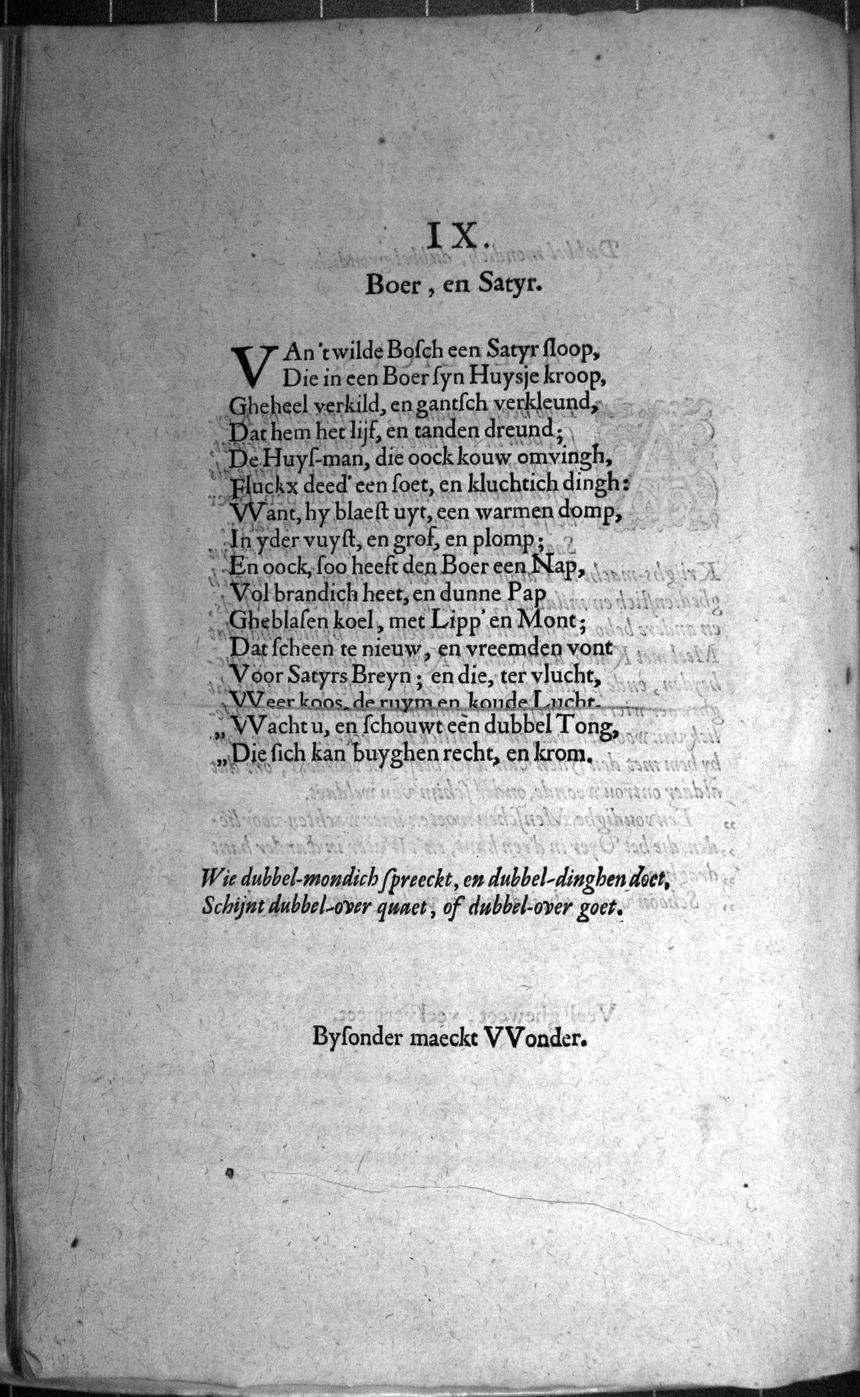 IX.
Boer, en Satyr.
VAn 't wilde Boſch een Satyr ſloop,
Die in een Boer ſyn Huysje kroop,
Gheheel verkild, en gantſch verkleund,
Dat hem het lijf, en tanden dreund;
De Huyſ-man, die oock kouw omvingh,
Fluckx deed' een ſoet, en kluchtich dingh:
VVant, hy blaeſt uyt, een warmen domp,
In yder vuyſt, en grof, en plomp;
En oock, ſoo heeft den Boer een Nap,
Vol brandich heet, en dunne Pap
Gheblaſen koel, met Lipp' en Mont;
Dat ſcheen te nieuw, en vreemden vont
Voor Satyrs Breyn; en die, ter vlucht,
VVeer koos, de ruym en koude Lucht.
„ VVacht u, en ſchouwt een dubbel Tong,
„ Die ſich kan buyghen recht, en krom.
Wie dubbel-mondich ſpreeckt, en dubbel-dinghen doet,
Schijnt dubbel-over quaet, of dubbel-over goet.
Byſonder maeckt VVonder.